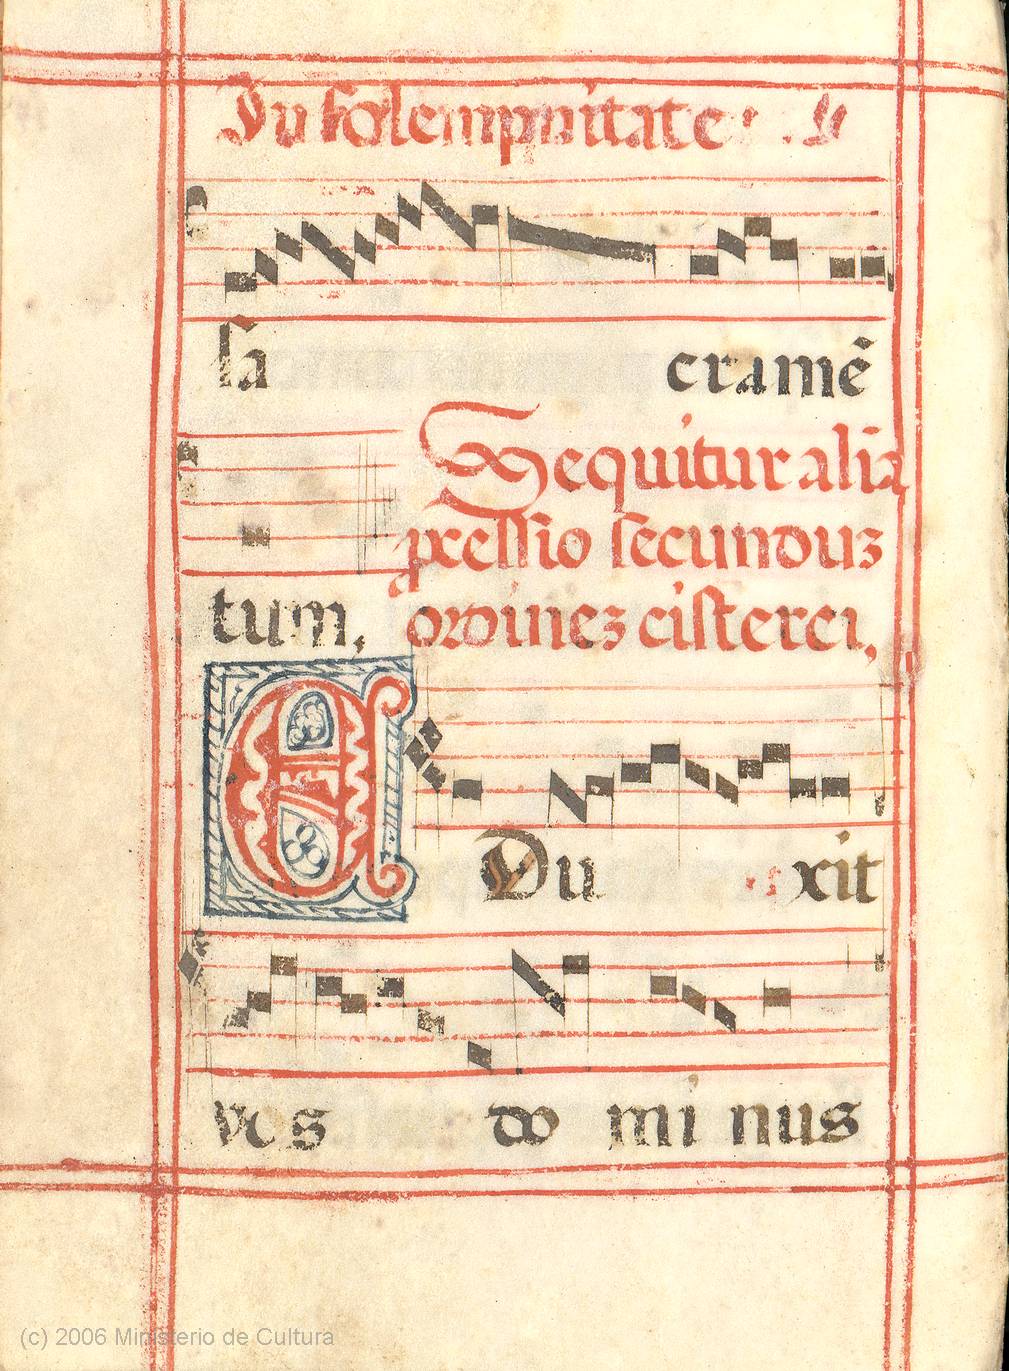 In solempnitate
sa cramē
Sequitur alia
p̃cessio secunduʒ
tum, ordineʒ cisterci,
EDu xit
vos do mi nus
(c) 2006 Ministerio de Cultura